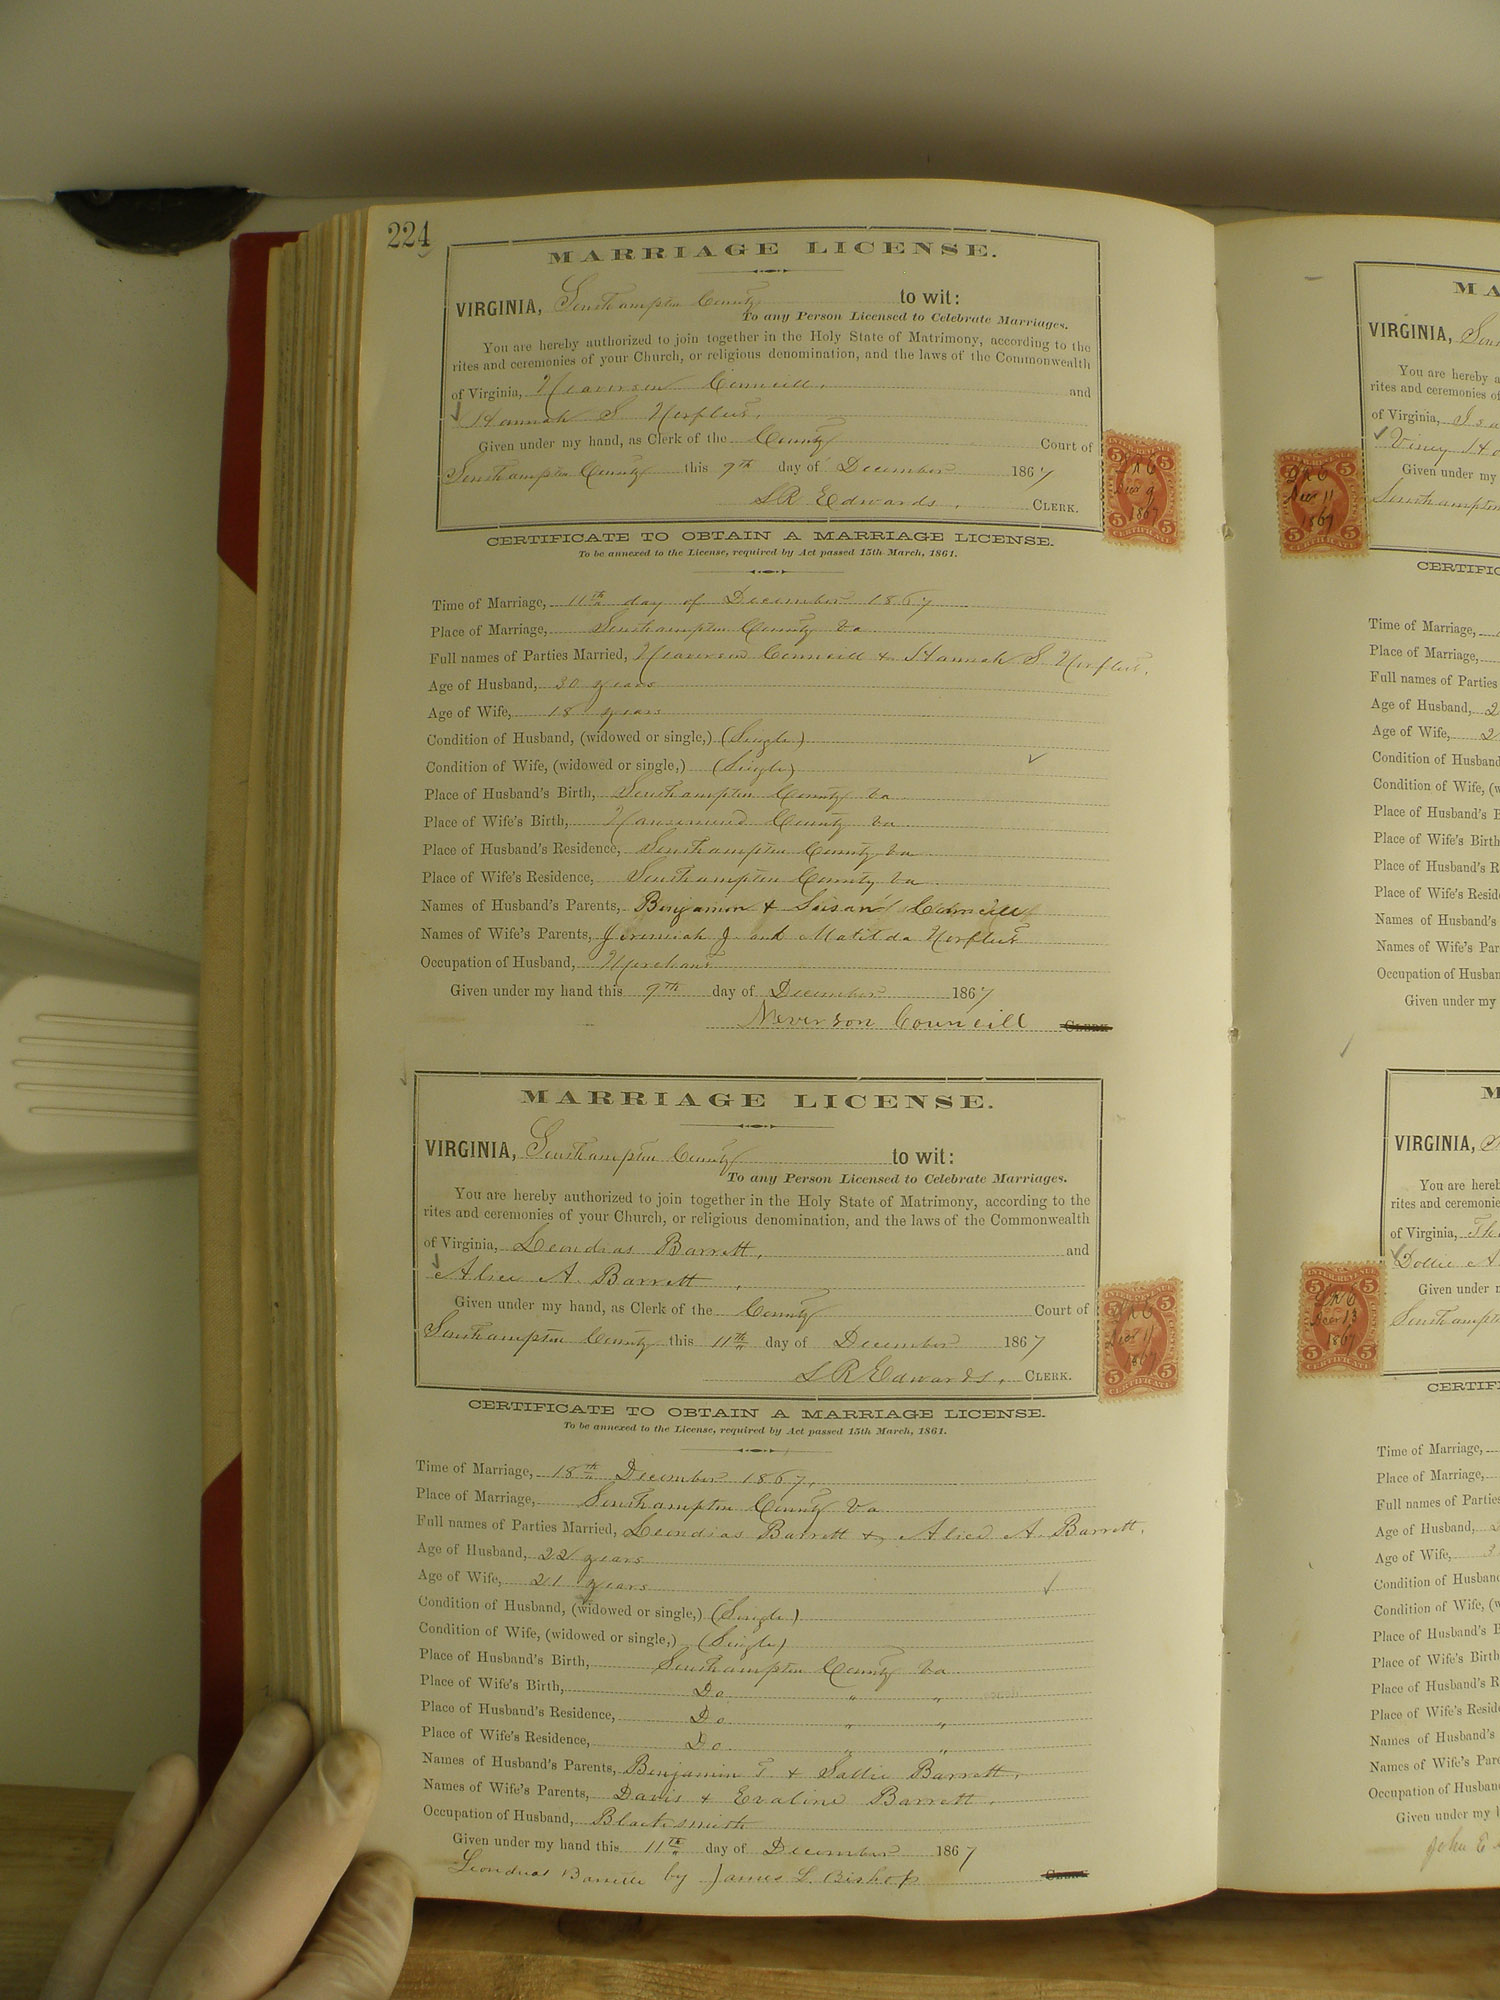 224
MARRIAGE LICENSE.
VIRGINIA, Southampton County to wit:
To any Person Licensed to Celebrate Marriages.
You are hereby authorized to join together in the Holy State of Matrimony, according to the
rites and ceremonies of your Church, or religious denomination, and the laws of the Commonwealth
of Virginia, Neaverson Councill, and
Hannah S Norfleet.
Given under my hand, as Clerk of the County Court of
Southampton County this 9th day of December 1867
L R Edwards, CLERK.
INTER. REVENUE
5 5
LRE
Dec 9
1867
5 5
CERTIFICATE
CERTIFICATE TO OBTAIN A MARRIAGE LICENSE.
To be annexed to the License, required by Act passed 15th March, 1861.
Time of Marriage, 11th day of December 1867
Place of Marriage, Southampton County Va
Full names of Parties Married, Neaverson Councill & Hannah S. Norfleet.
Age of Husband, 30 years
Age of Wife, 18 years
Condition of Husband, (widowed or single,) (Single)
Condition of Wife, (widowed or single,) (Single)
Place of Husband's Birth, Southampton County Va
Place of Wife's Birth, Nansemond County Va
Place of Husband's Residence, Southampton County Va
Place of Wife's Residence, Southampton County Va
Names of Husband's Parents, Benjamin & Susan Councill
Names of Wife's Parents, Jeremiah J. and Matilda Norfleet
Occupation of Husband, Merchant
Given under my hand this 9th day of December 1867
Neverson Councill CLERK
MARRIAGE LICENSE.
VIRGINIA, Southampton County to wit:
To any Person Licensed to Celebrate Marriages.
You are hereby authorized to join together in the Holy State of Matrimony, according to the
rites and ceremonies of your Church, or religious denomination, and the laws of the Commonwealth
of Virginia, Leondias Barrett, and
Alice A. Barrett,
Given under my hand, as Clerk of the County Court of
Southampton County this 11th day of December 1867
L R Edwards, CLERK.
INTER. REVENUE
5 5
LRE
Dec 11
1867
5 5
CERTIFICATE
CERTIFICATE TO OBTAIN A MARRIAGE LICENSE.
To be annexed to the License, required by Act passed 15th March, 1861.
Time of Marriage, 18th December 1867,
Place of Marriage, Southampton County Va
Full names of Parties Married, Leondias Barrett & Alice A. Barrett.
Age of Husband, 22 years
Age of Wife, 21 years
Condition of Husband, (widowed or single,) (Single)
Condition of Wife, (widowed or single,) (Single)
Place of Husband's Birth, Southampton County Va
Place of Wife's Birth, Do " "
Place of Husband's Residence, Do " "
Place of Wife's Residence, Do " "
Names of Husband's Parents, Benjamin T. & Sallie Barrett,
Names of Wife's Parents, Davis & Evaline Barrett,
Occupation of Husband, Blacksmith
Given under my hand this 11th day of December 1867
Leondias Barrett by James L. Bishop CLERK
MA
VIRGINIA, Sou
You are hereby a
rites and ceremonies of
of Virginia, Isa
Viney Ho
Given under my
Southampton
INTER. REVENUE
5 5
LRE
Dec 11
1867
5 5
CERTIFICATE
CERTIFIC
Time of Marriage,
Place of Marriage,
Full names of Parties
Age of Husband, 2
Age of Wife, 2
Condition of Husband
Condition of Wife, (w
Place of Husband's B
Place of Wife's Birth
Place of Husband's R
Place of Wife's Resid
Names of Husband's
Names of Wife's Par
Occupation of Husban
Given under my
M
VIRGINIA, S
You are hereb
rites and ceremonie
of Virginia, Tho
Dollie A
Given under m
Southampt
INTER. REVENUE
5 5
LRE
Dec 13
1867
5 5
CERTIFICATE
CERTIF
Time of Marriage,
Place of Marriage,
Full names of Partie
Age of Husband, 2
Age of Wife, 3
Condition of Husban
Condition of Wife, (w
Place of Husband's B
Place of Wife's Birth
Place of Husband's R
Place of Wife's Resid
Names of Husband's
Names of Wife's Par
Occupation of Husban
Given under my h
John E